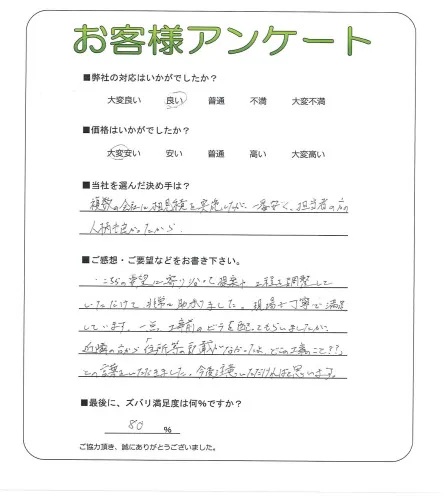 お客様アンケート
■弊社の対応はいかがでしたか？
大変良い 良い 普通 不満 大変不満
■価格はいかがでしたか？
大変安い 安い 普通 高い 大変高い
■当社を選んだ決め手は？
複数の会社に相見積を実施したが、一番安く、担当者の方の
人柄も良かったから
■ご感想・ご要望などをお書き下さい。
こちらの要望に寄りそった提案や工程を調整して
いただけて非常に助かりました。現場も丁寧で満足
しています。一点、工事前のビラを配ってもらいましたが、
近隣の方から「住所等の記載がなかったよ、どこの工事のこと??」
との言葉をいただきました。今後注意いただければと思います。
■最後に、ズバリ満足度は何％ですか？
80 ％
ご協力頂き、誠にありがとうございました。